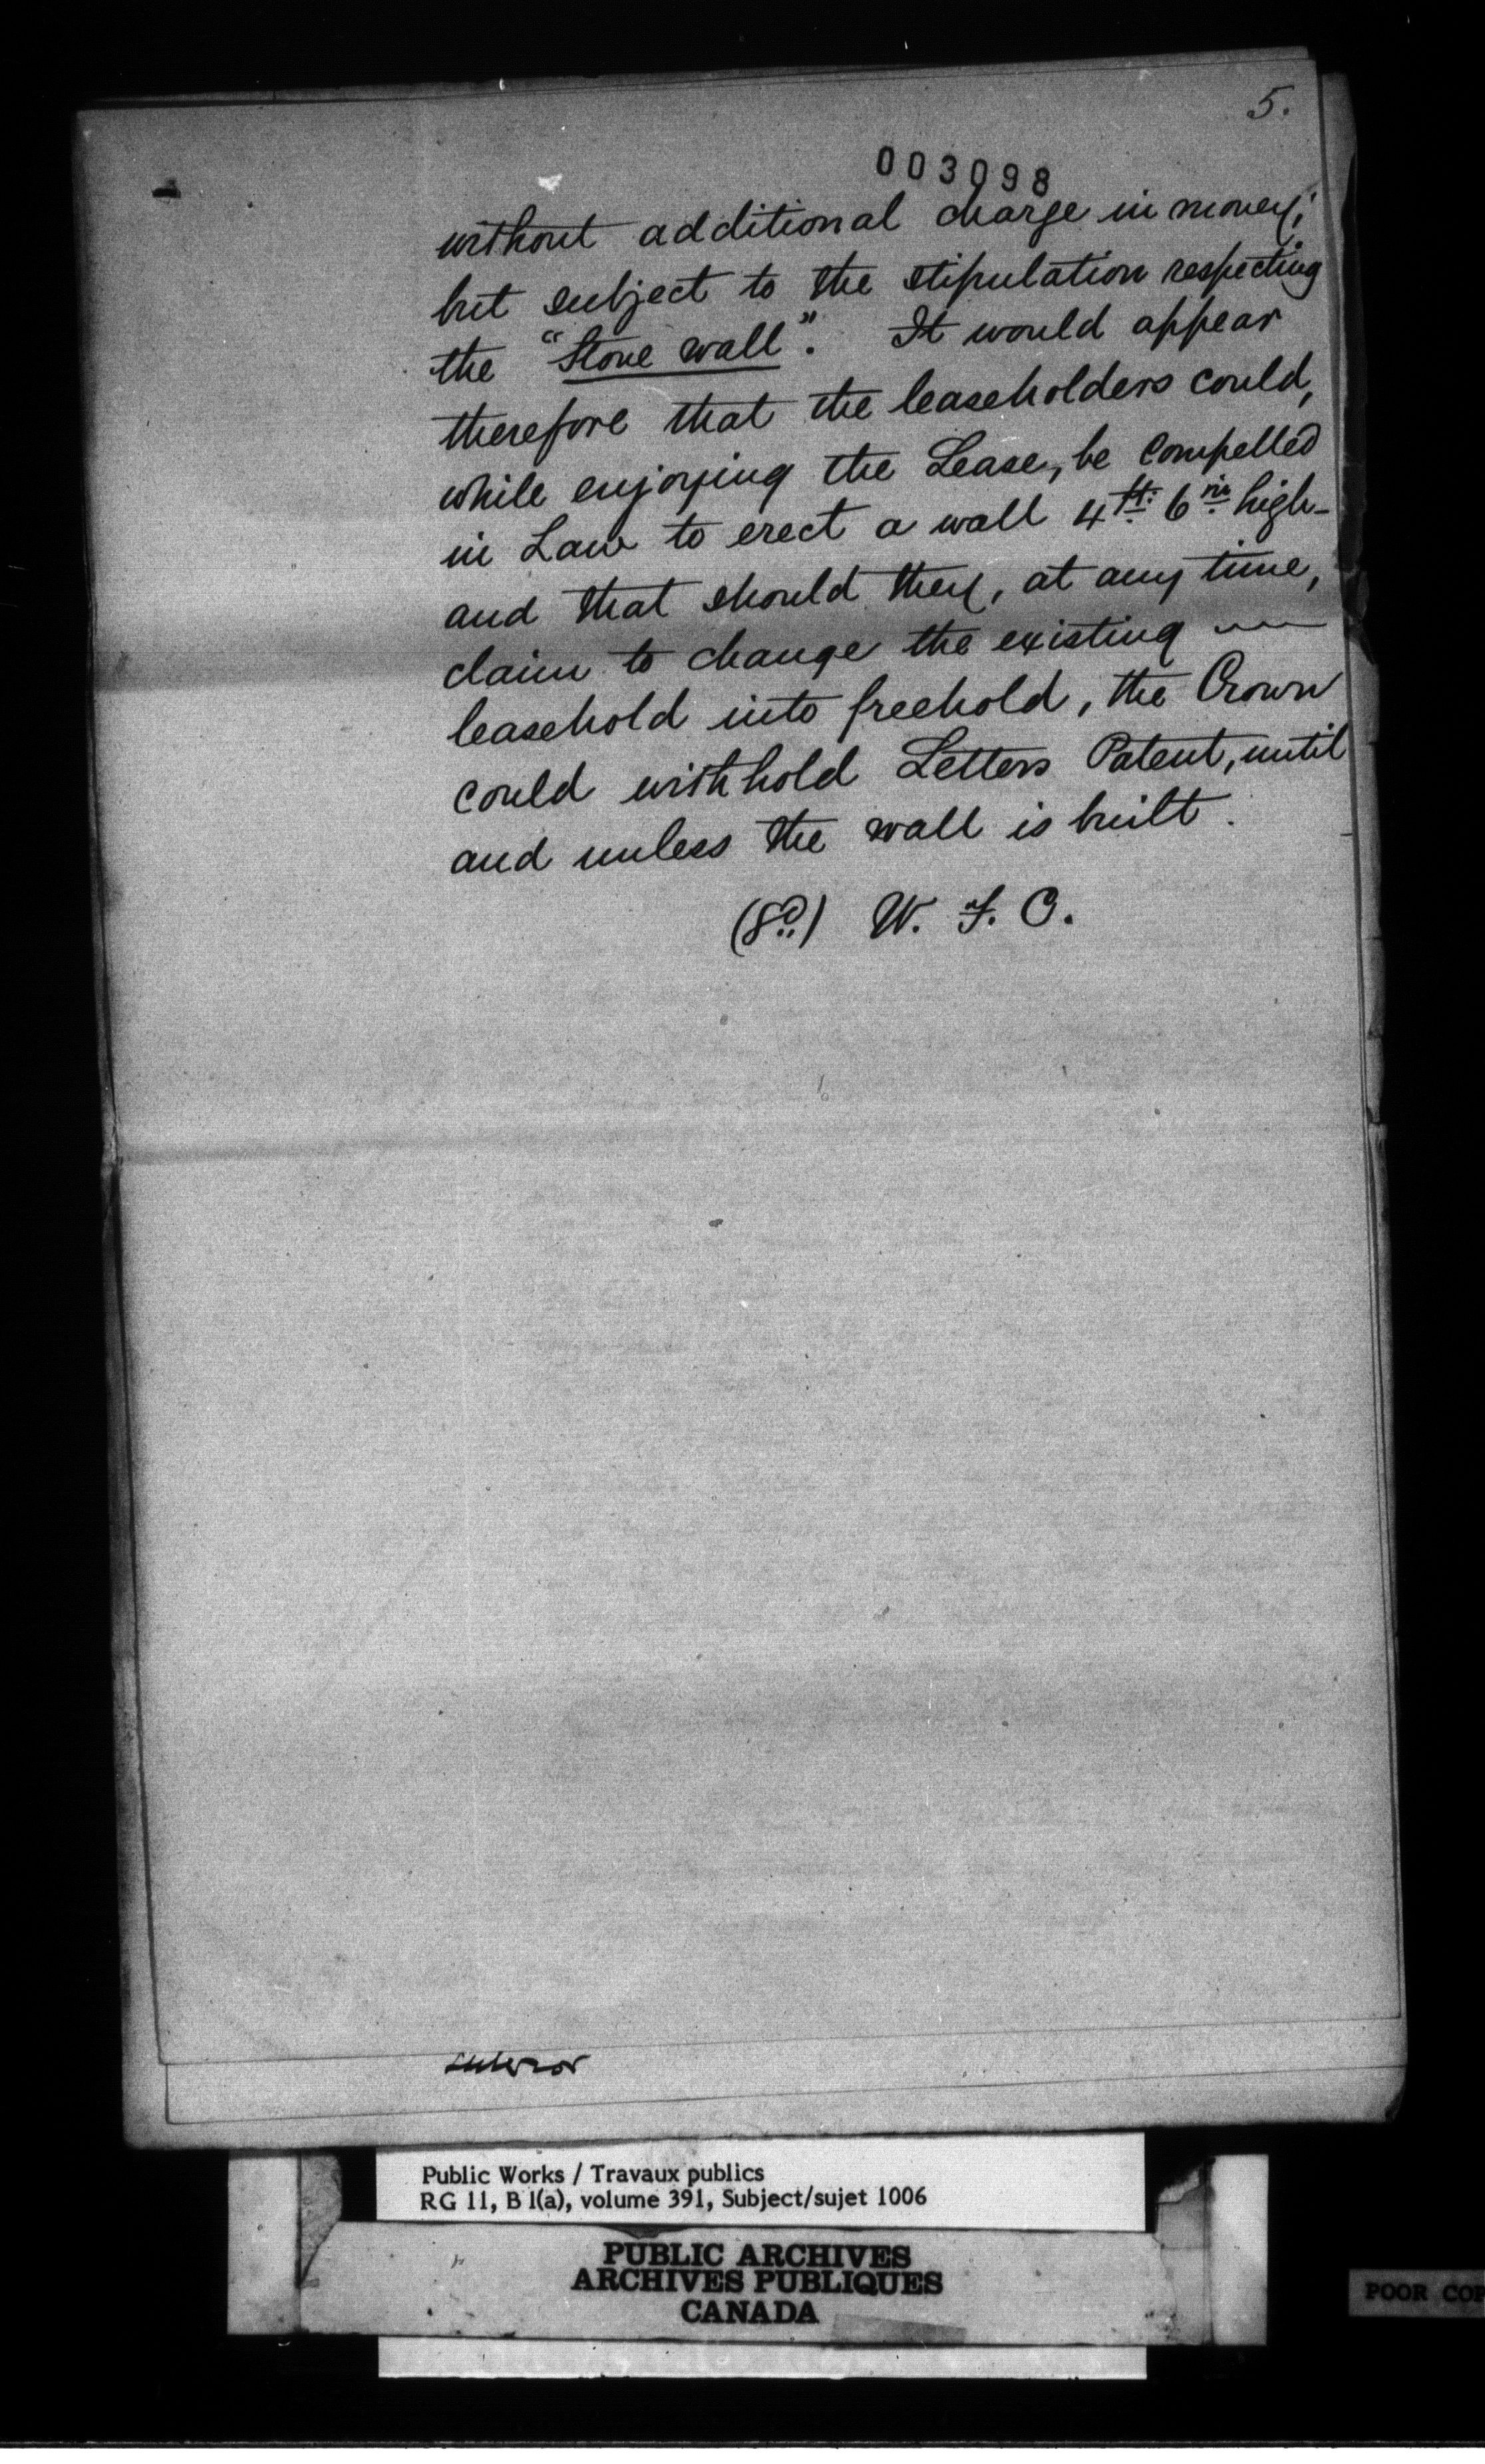 5.
003098
without additional charge in money;
but subject to the stipulation respecting
the "Stone wall". It would appear
therefore that the leaseholders could,
while enjoying the Lease, be compelled
in Law to erect a wall 4 ft: 6 in high_
and that should they, at any time,
claim to change the existing
leasehold into freehold, the Crown
could withhold Letters Patent, until
and unless the wall is built.
(Sd.) W. F. O.
Public Works / Travaux publics
RG 11, B 1(a), volume 391, Subject/sujet 1006
PUBLIC ARCHIVES
ARCHIVES PUBLIQUES
CANADA
POOR COP